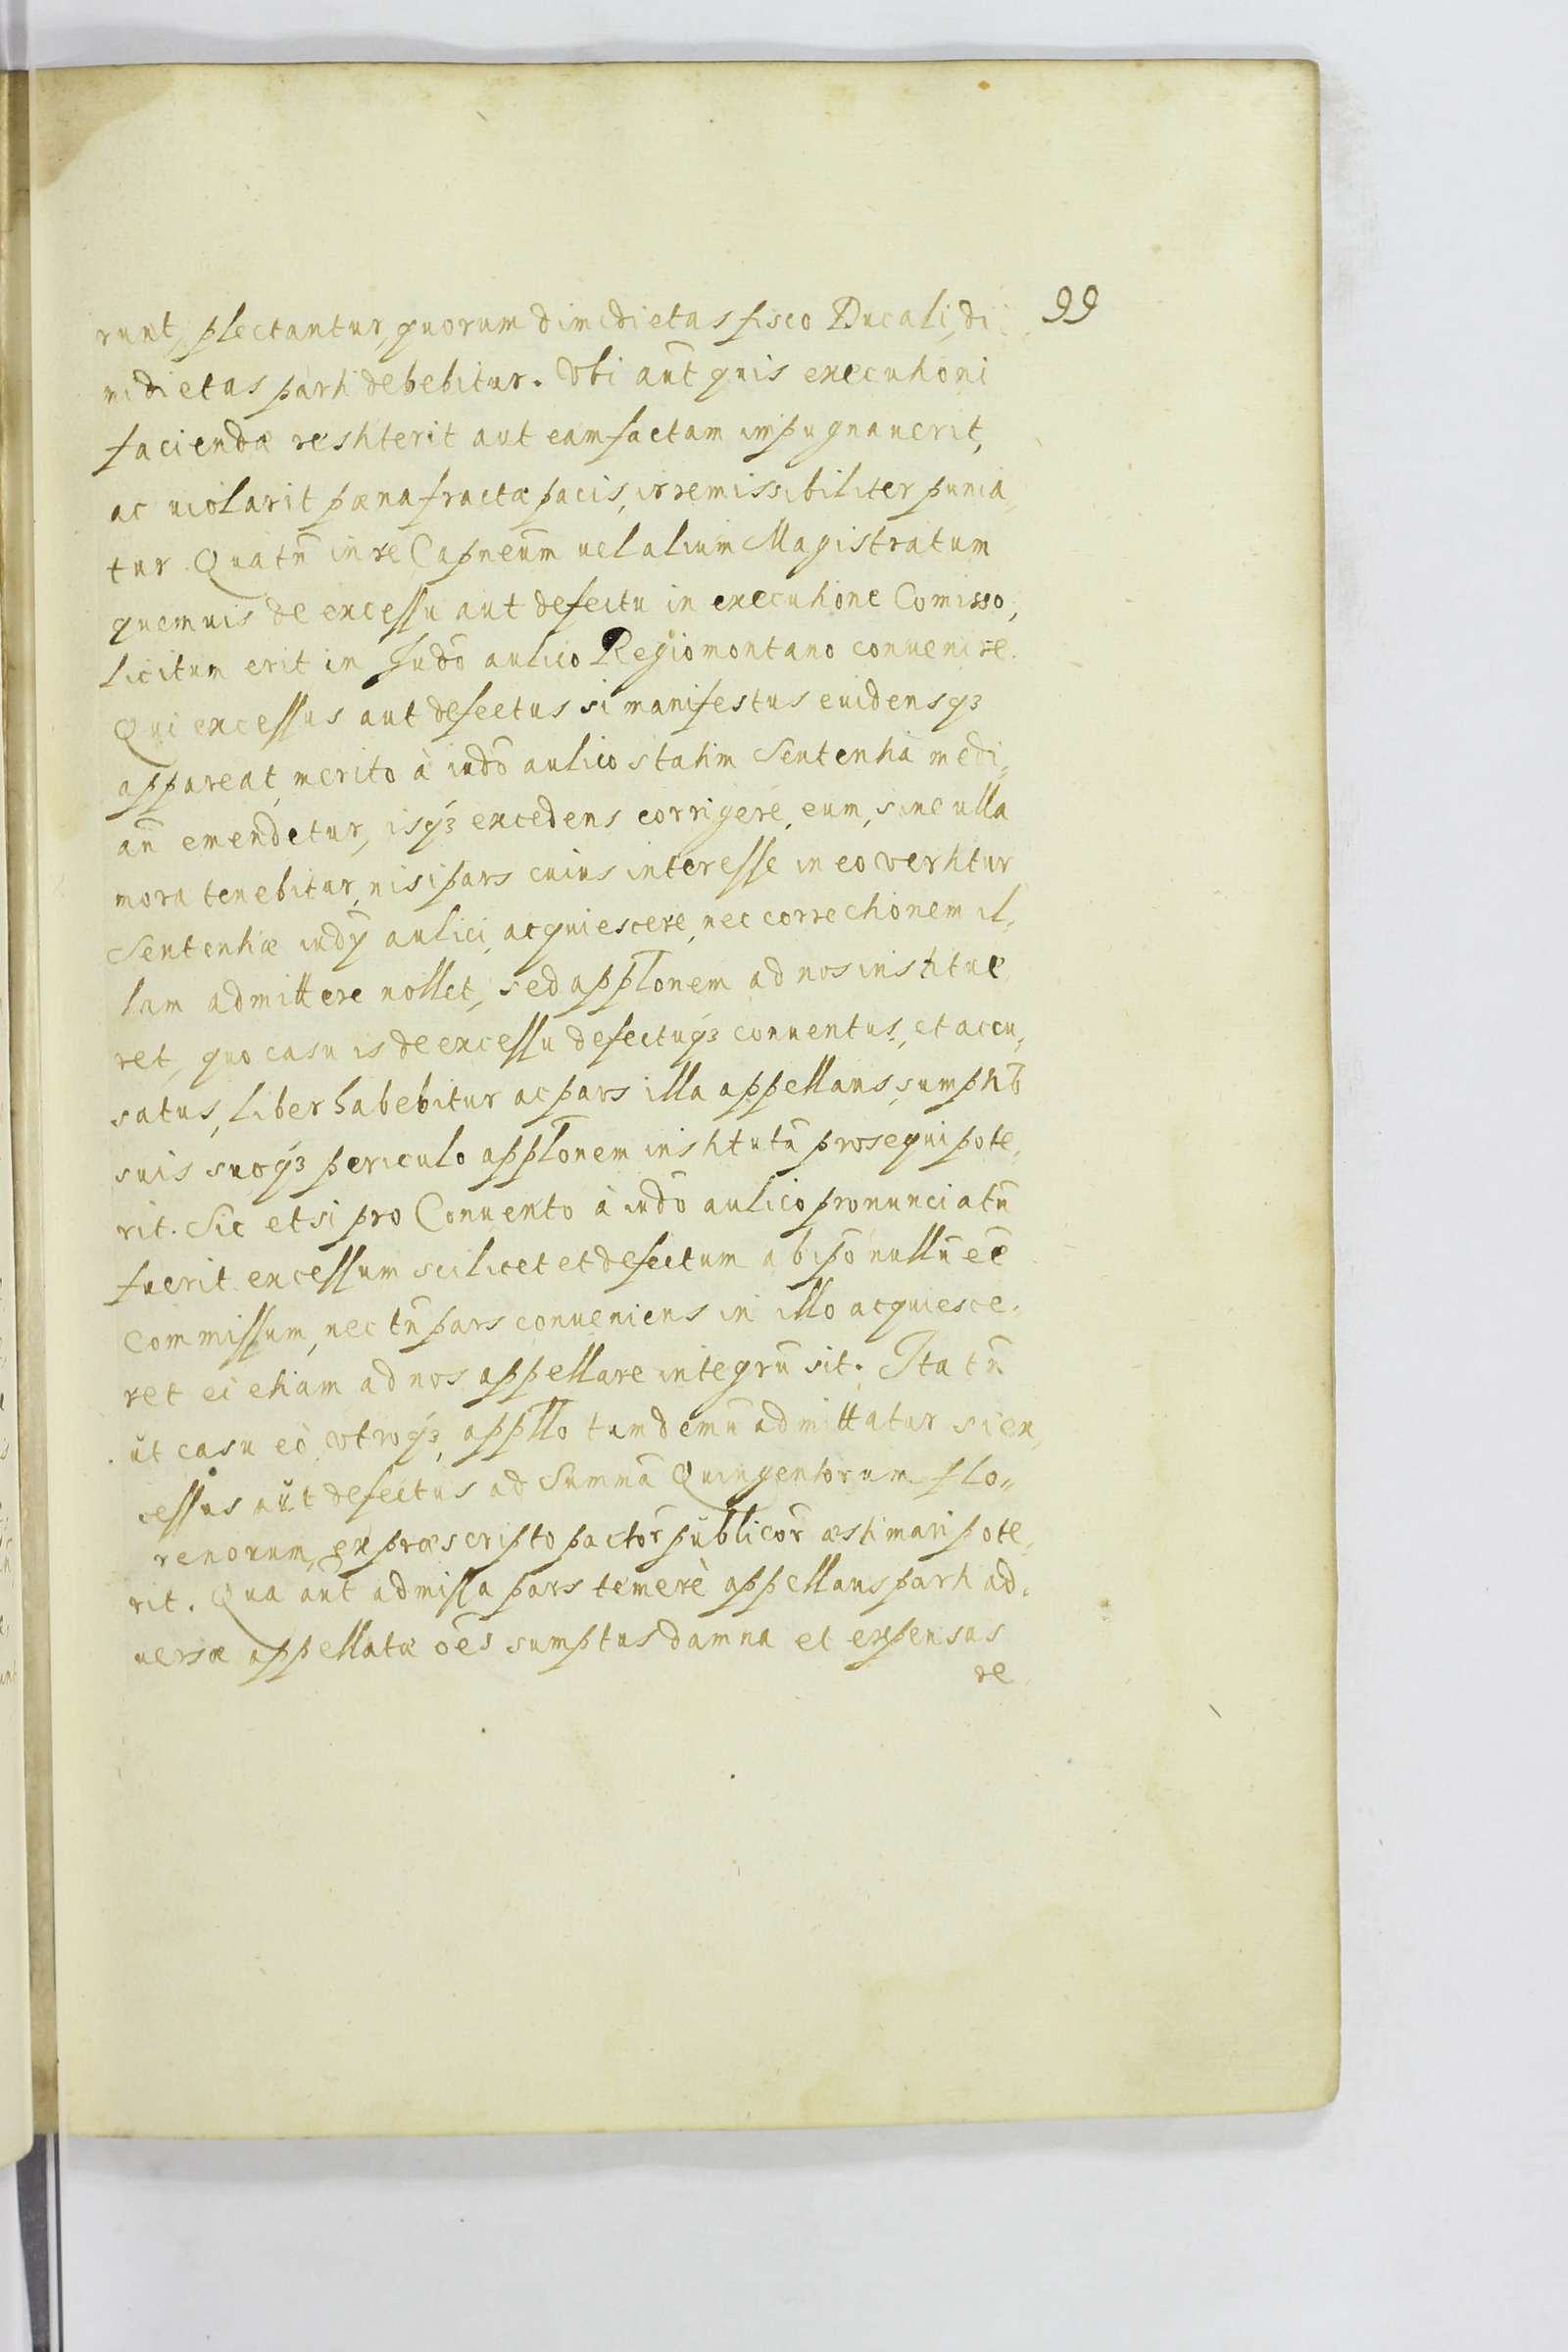 99
runt, plectantur, quorum dimidietas fisco Ducali, di
midietas parti debebitur. Vbi aūt quis executioni
faciendæ restiterit aut eam factam impugnauerit,
ac uiolarit pæna fractæ pacis, irremissibiliter punia„
tur. Quatū in re Capneūm uel alium Magistratum
quemuis de excessu aut defectu in executione Comisso,
licitum erit in Judō aulico Regiomontano conuenire.
Qui excessus aut defectus si manifestus euidensqȝ
appareat, merito à iudō aulico statim Sententia medi„
an̄ emendetur, isqȝ excedens corrigere, eum, sine ulla
mora tenebitur, nisi pars cuius interesse in eo vertitur
Sententiæ iudÿ aulici, acquiescere, nec correctionem il„
lam admittere nollet, sed applōnem ad nos institue
ret, quo casu is de excessu defectuqȝ conuentus, et accu„
satus, liber habebitur ac pars illa appellans, sumptib
suis suoqȝ periculo applōnem institutū prosequi pote„
rit. Sic et si pro Conuento à iudō aulico pronunciatū
fuerit excessum scilicet et defectum ab ipō nullū eē
commissum, nec tn̄ pars conueniens in illo acquiesce„
ret ei etiam ad nos appellare integrū sit. Ita tn̄
ut casu eo, vtroqȝ, appllō tum demū admittatur si ex„
cessus aut defectus ad Summā Quingentorum flo„
renorum, ex præscripto pactor̄ publicor̄ æstimari pote„
rit. Qua aūt admissa pars temerè appellans parti ad„
uersæ appellatæ oēs sumptus damna et expensas
re